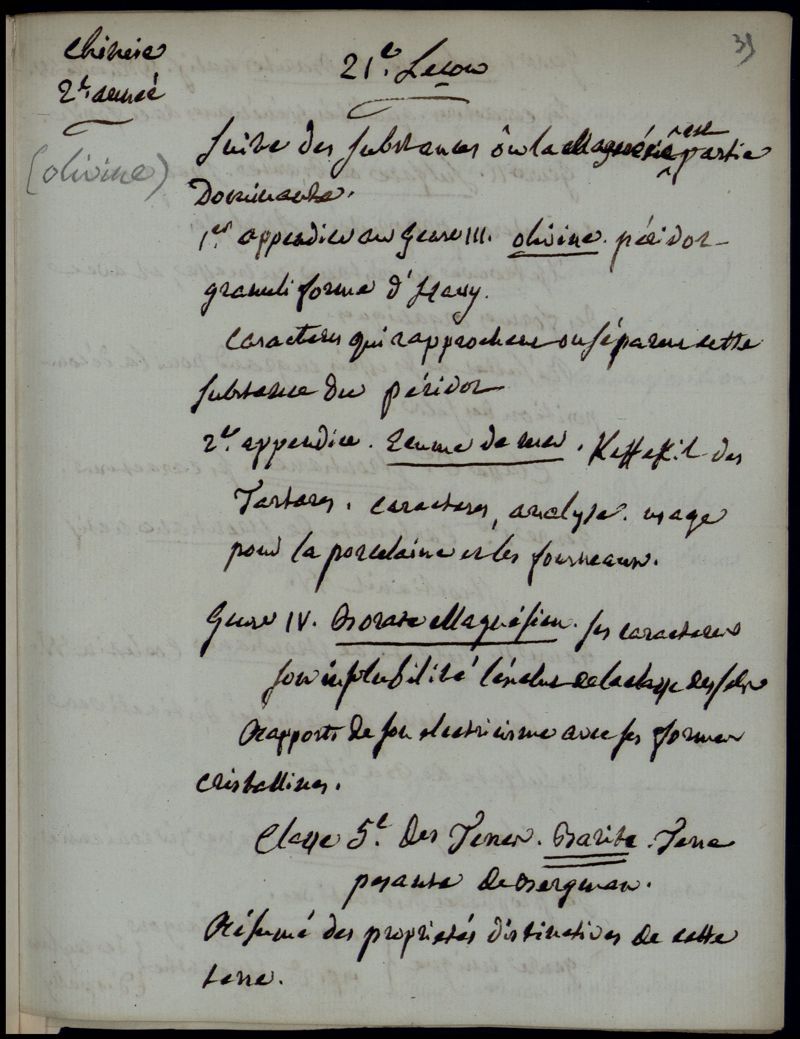 39
Chimie
2e. année
21e. Leçon
(olivine)
Suite des substances où la Magnésie est partie
Dominante.
1er. appendice au Genre III. olivine. péridot
granuliforme d'Hauy.
Caracteres qui rapprochent ou séparent cette
substance du péridot
2e. appendice. Ecume de mer. Keffekil des
Tartares. caracteres, analyse. usage
pour la porcelaine et les fourneaux.
Genre IV. Borate Magnésien. ses caracteres
son insolubilité l'exclut de la classe des sels
Rapports de son electricisme avec ses formes
cristallines.
Classe 5e. des Terres. Barite. Terre
pesante de Bergman.
Résumé des proprietés distinctives de cette
terre.